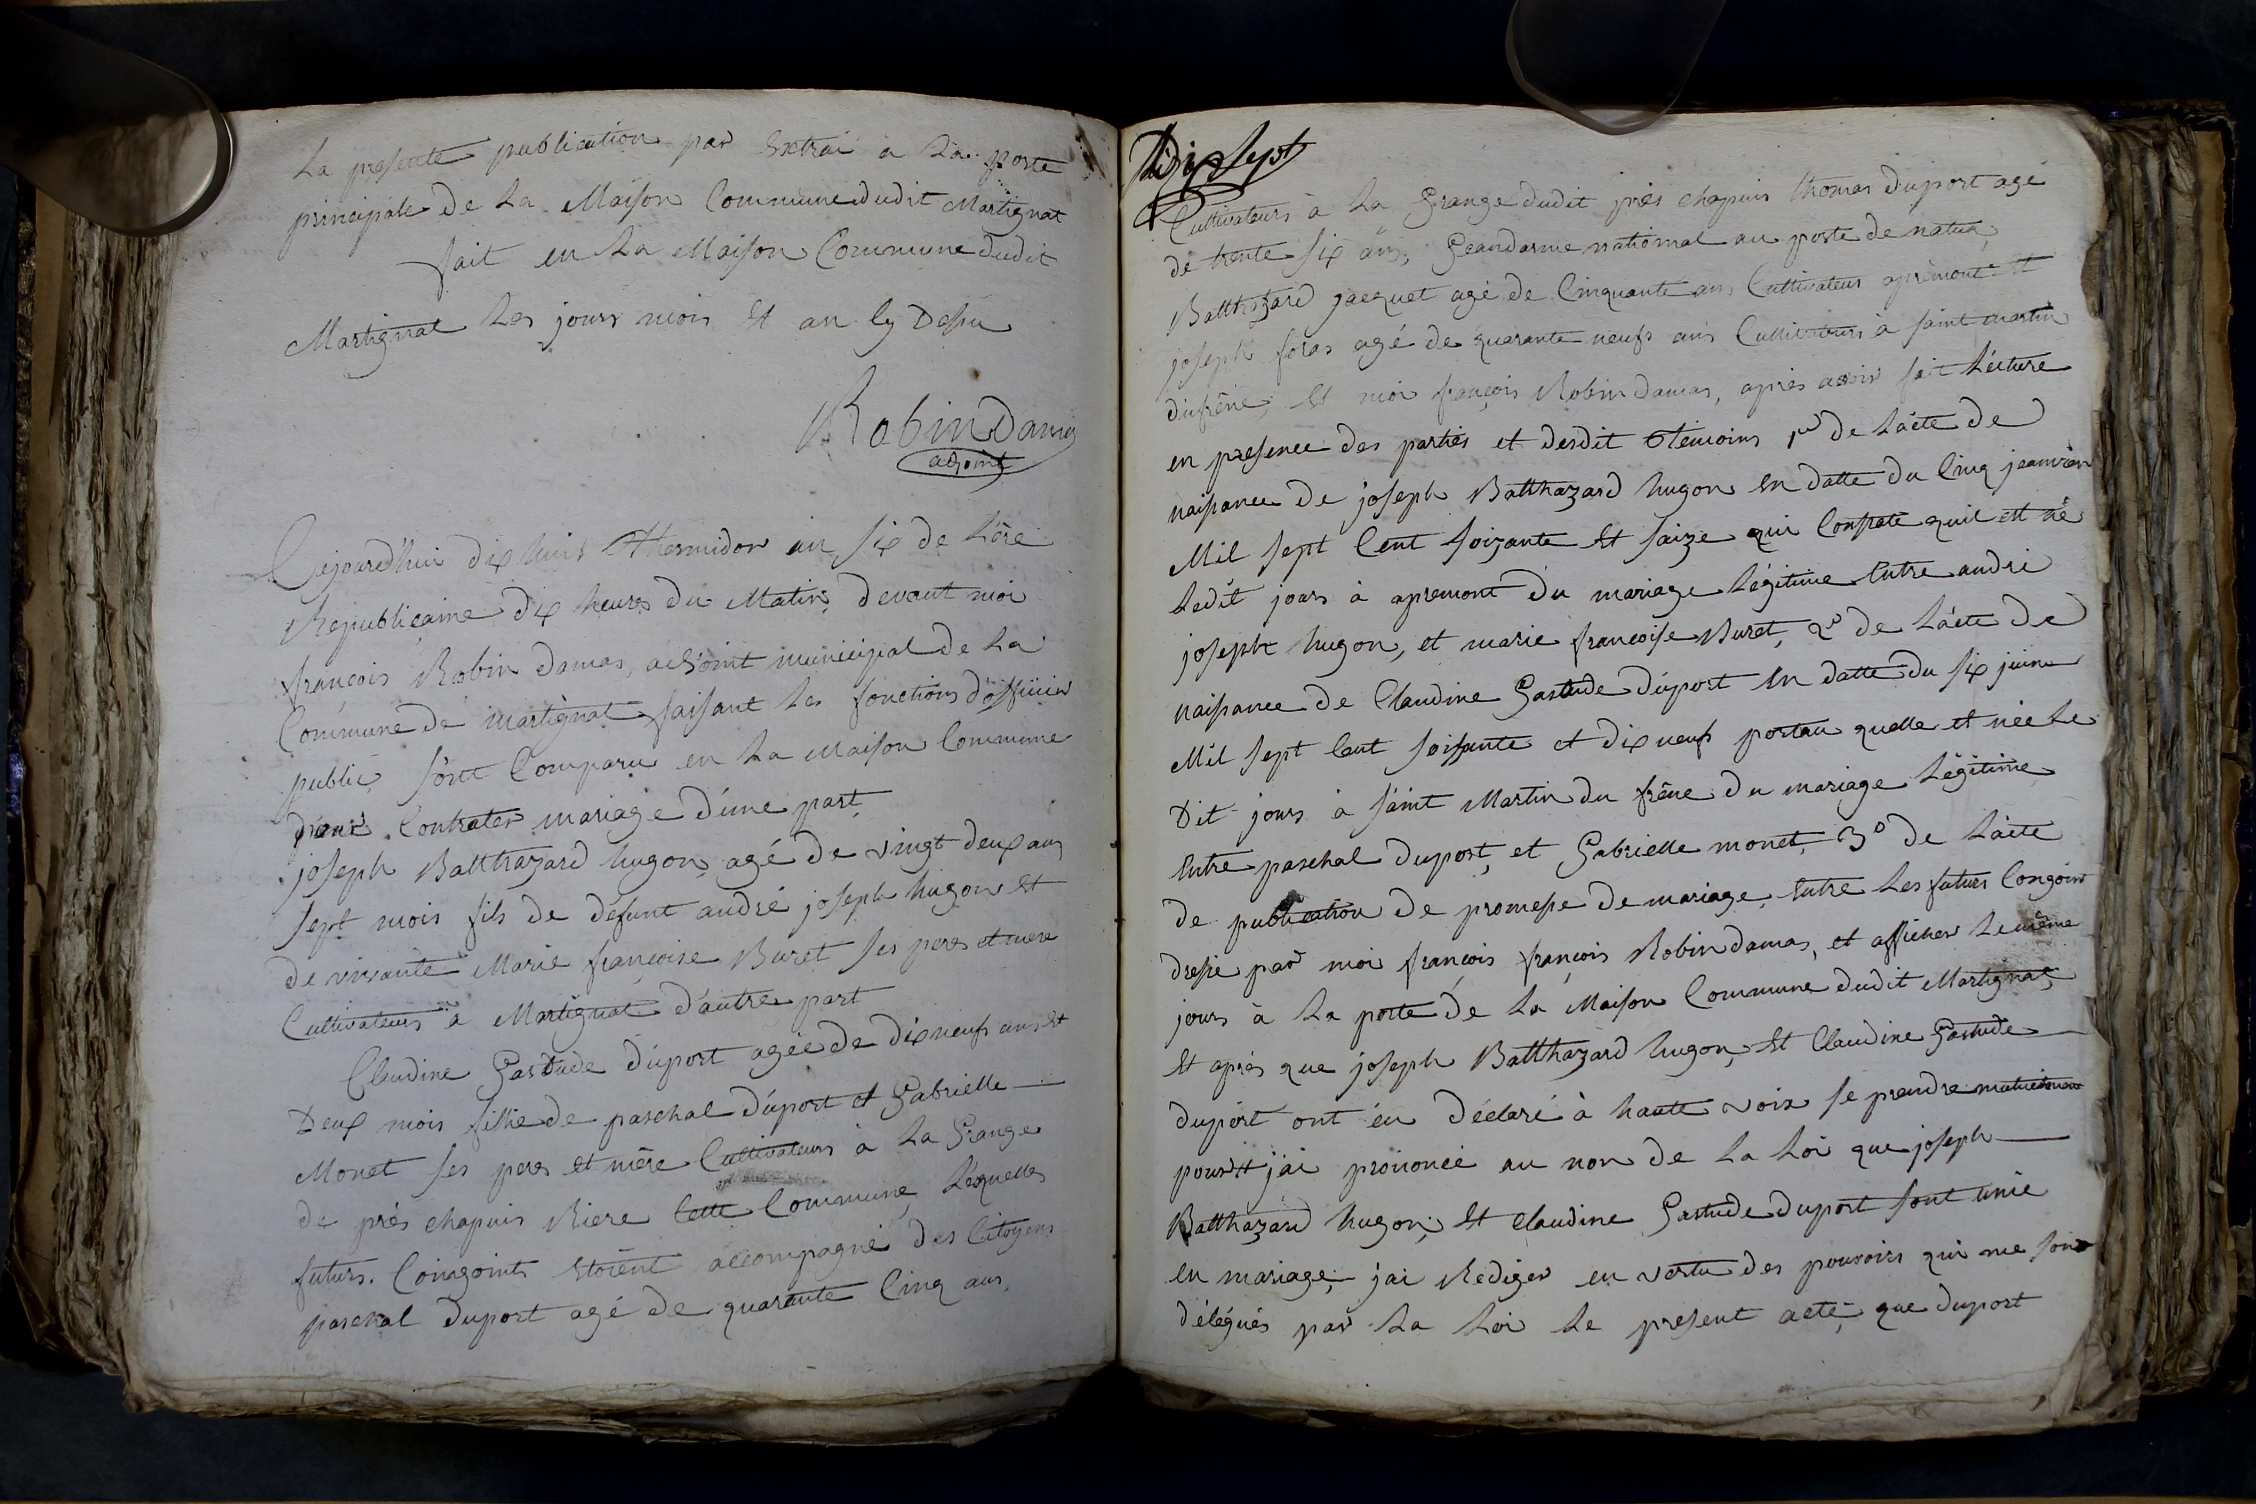 La presente publication par Extrai a La porte
principale de La Maison Commune dudit Martignat
fait en La Maison Commune dudit
Martignat Les jours mois Et an cy Dessu
Robin Damas
adjoint
Cejourd'huir dix huis thermidor an six de L'ère
Republicaine dix heures du Matin, devant moi
françois Robin damas, adjoint municipal de La
Commune de martignat faisant Les fonctions d'officier
public, sont Comparu en La Maison Commune
pour Contrater mariage d'une part
joseph Balthazard hugon agé de vingt deux ans
sept mois fils de défunt andré joseph hugon Et
de vivante Marie françoise Buret ses peres et mere
Cultivateurs à Martignat d'autre part
Claudine Gastude duport agée de dix neufs ans et
Deux mois fille de paschal duport et Gabrielle
Monet ses peres et mère Cultivateurs à La Grange
de près chapuis Riere Cette Commune, Lesquelles
futurs Congoints Etoient accompagné des Citoyens
paschal duport agé de quarante Cinq ans,
dix sept
Cultivateurs à La Grange dudit près chapuis thomas duport agé
de trente six ans, Geandarme national au poste de natua,
Balthazard jacquet agé de Cinquante ans Cultivateur apremont et
joseph foras agé de quarante neufs ans Cultivateurs à saint martin
dufrêne, Et moi françois Robin damas, après avoir fait Lécture
en presence des parties et desdit témoins 1º de Lácte de
naissance de joseph Balthazard hugon En datte du Cinq jeanvier
Mil sept Cent soizante Et saize qui Constate quil est né
Ledit jours à apremont du mariage Légitime Entre andré
joseph hugon, et marie francoise Buret, 2º de Lácte de
naissance de Claudine Gastude duport En datte du six juin
Mil sept Cent soissante et dix neufs portan quelle et née Le
Dit jours à saint Martin du frêne du mariage Légitime
Entre paschal duport, et Gabrielle monet, 3º de Lácte
de publication de promesse de mariage Entre Les futurs Congoint
dressé par moi françois françois Robin damas, et afficher Le même
jours à La porte de La Maison Commune dudit Martignat,
Et après que joseph Balthazard hugon, Et Claudine Gastude
duport ont éu déclaré à haute voix se prendre mutuelement
pour jai prononcé au non de La Loi que joseph
Balthazard hugon, Et Claudine Gastude duport sont unie
En mariage, jai Rediger en vertu des pouvoirs qui me son
délégués par La Loi Le present acte, que duport